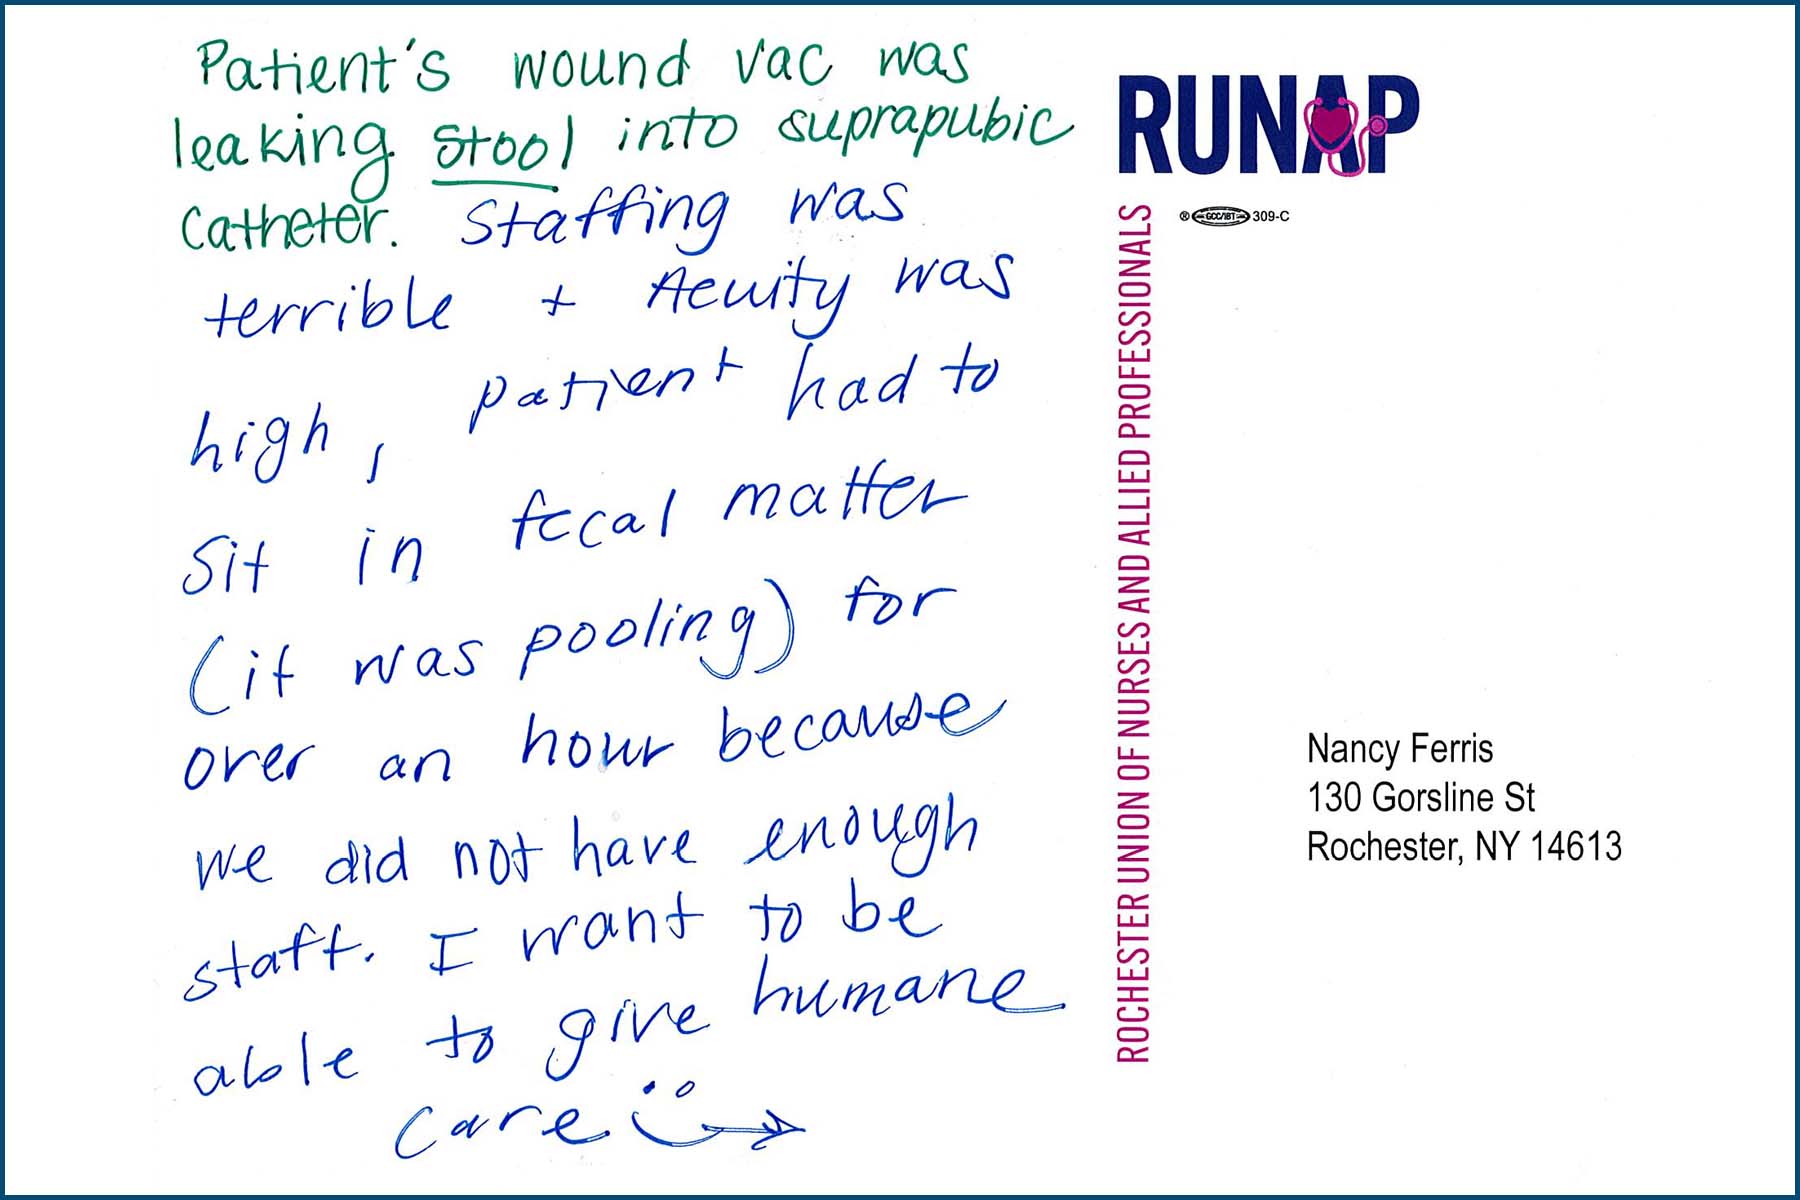 Patient's wound vac was
leaking stool into suprapubic
catheter. Staffing was
terrible + Acuity was
high, patient had to
sit in fecal matter
(it was pooling) for
over an hour because
we did not have enough
staff. I want to be
able to give humane
care
RUNAP
® GCC/IBT 309-C
ROCHESTER UNION OF NURSES AND ALLIED PROFESSIONALS
Nancy Ferris
130 Gorsline St
Rochester, NY 14613